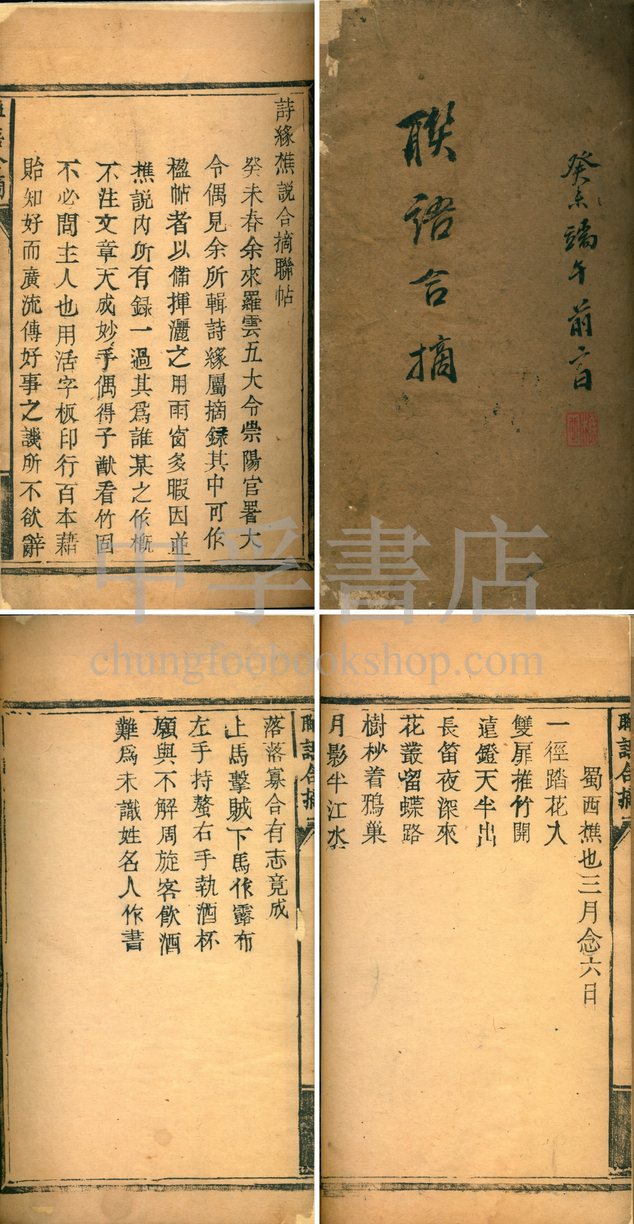 聯語合摘
癸未端午前一日
詩緣樵說合摘聯帖
癸未春余來羅雲五大令崇陽官署大
令偶見余所輯詩緣屬摘錄其中可作
楹帖者以備揮灑之用雨窗多暇因並
樵說內所有錄一過其爲誰某之作槪
不注文章天成妙手偶得子猷看竹固
不必問主人也用活字板印行百本藉
貽知好而廣流傳好事之譏所不欲辭
蜀西樵也三月念六日
一徑踏花入
雙扉推竹開
遠鐙天半出
長笛夜深來
花叢畱蝶路
樹杪着鴉巢
月影半江水
聯語合摘
落落寡合有志竟成
上馬擊賊下馬作露布
左手持螯右手執酒杯
願與不解周旋客飮酒
難爲未識姓名人作書
聯語合摘
中孚書店
chungfoobookshop.com